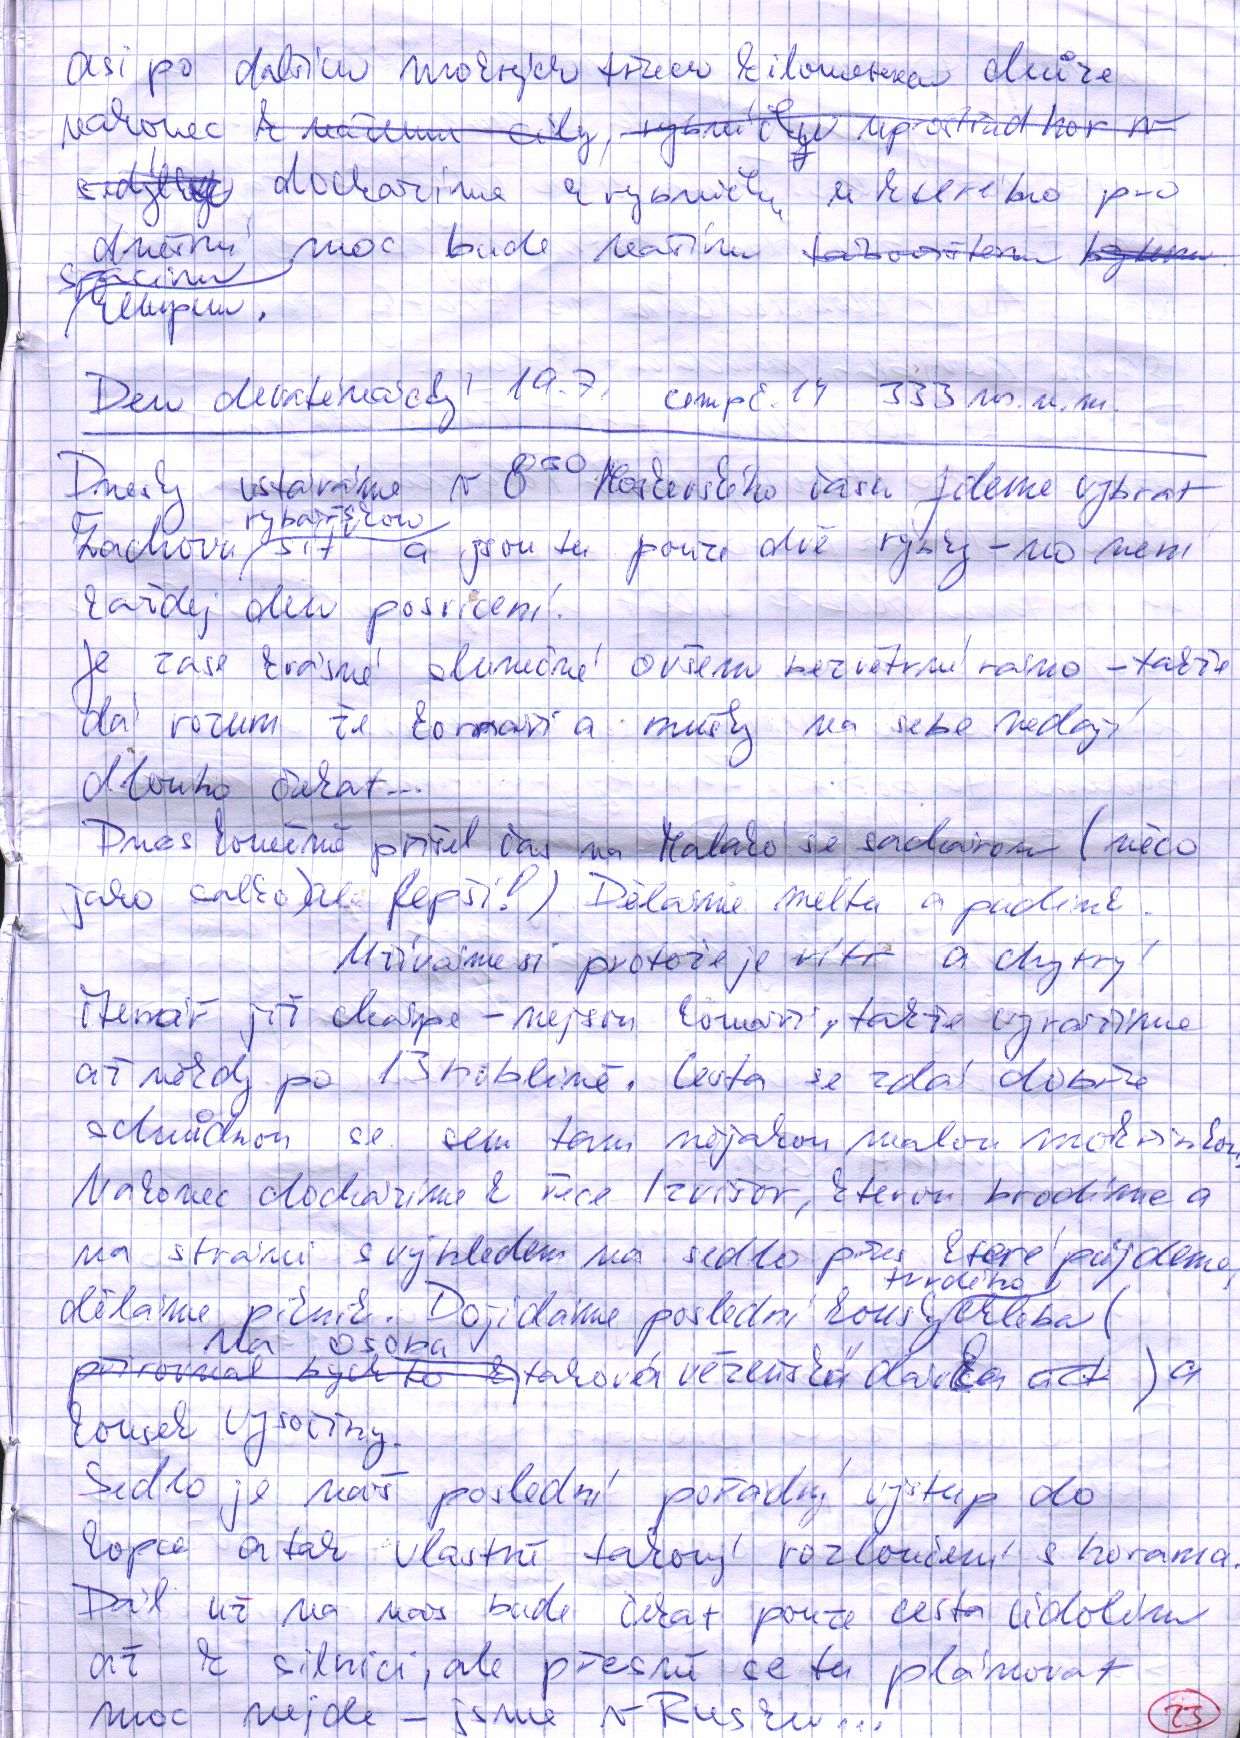 Asi po dalších mokrých třech kilometrech chůze
nakonec k našemu cíly, rybníčky uprostřed hor v
sedýlky docházíme k rybníčky, u kterého pro
dnešní noc bude naším tábořištěm
spacím
kempem.
Den devatenáctý 19.7. cempč. 14 333 m.n.m.
Dnesky vstáváme v 8 50 Moskevského času jdeme vybrat
rybářskou
Žachovu síť a jsou tu pouze dvě rybky - no není
každej den posvícení.
Je zase krásné slunečné ovšem bezvětrné ráno - takže
dá rozum že komáři a mušky na sebe nedají
dlouho čekat...
Dnes konečně přišel čas na Malako se sacharom (něco
jako salko ale lepší!) Děláme meltu a pudink.
Užíváme si protože je vítr a chytrý
čtenář již chápe - nejsou komáři, takže vyrážíme
až někdy po 13 hoblině. Cesta se zdá dobře
schůdnou se sem tam nějakou malou mokřinkou,
Nakonec docházíme k řece Izvitor, kterou brodíme a
na stráni s výhledem na sedlo přes které půjdeme,
děláme piknik. Dojídáme poslední kousky chleba (
tvrdého
na osoba
přirovnal bych to k taková vězeňská dávka ) a
kousek vysočiny.
Sedlo je náš poslední pořádný výstup do
kopce a tak vlastně takový rozloučení s horama.
Dál už na nás bude čekat pouze cesta údolím
až k silnici, ale přesně se tu plánovat
moc nejde - jsme v Rusku...
23